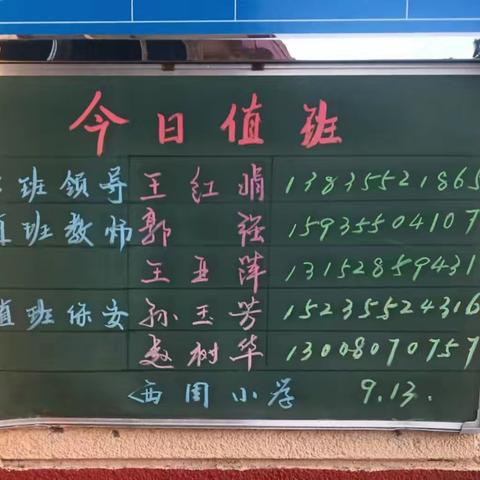 今日值班
值班领导 王红娟 13835521865
值班教师 郭强 15935504107
王亚萍 13152859431
值班保安 孙玉芳 15235524316
赵树华 13008070757
西周小学 9.13.